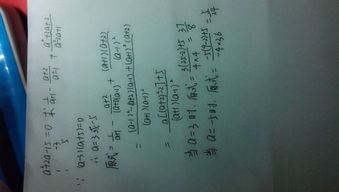 a²+2a-15=0 求 1/(a+1) - (a+2)/(a²-1) + (a²+3a+2)/(a²-2a+1)
∵ (a-3)(a+5)=0
∴ a=3或-5
原式= 1/(a+1) - (a+2)/((a+1)(a-1)) + (a+1)(a+2)/(a-1)²
= ((a-1)²-(a+2)(a-1)+(a+1)²(a+2))/((a+1)(a-1)²)
= (a[(a+2)²-2]+5)/((a+1)(a-1)²)
当 a=3 时, 原式= (3(25-2)+5)/(4×4) = 37/8
当 a=-5时, 原式= (-5(9-2)+5)/(-4×36) = 5/24